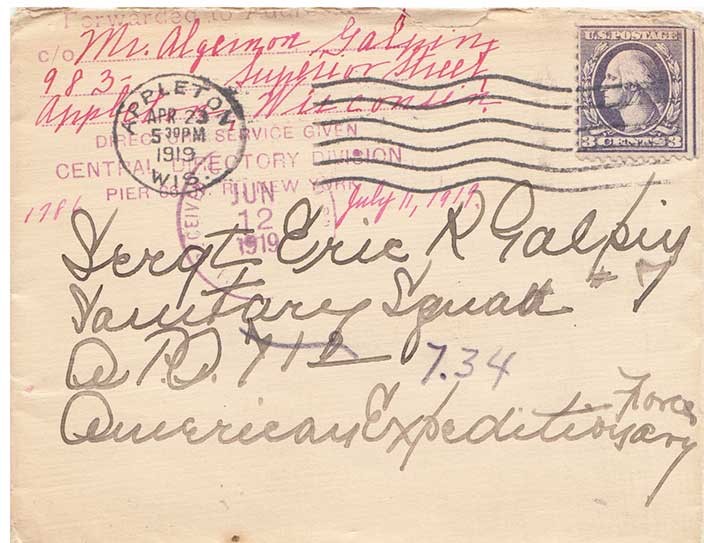 Forwarded to Address
c/o Mr. Algernon Galpin
983- Superior Street
Appleton, Wisconsin.
U.S. POSTAGE
3 CENTS 3
APPLETON
APR 23
5 30 PM
1919
WIS.
DIRECTORY SERVICE GIVEN
CENTRAL DIRECTORY DIVISION
PIER NEW YORK
1986
JUN
12
1919
July 11, 1919.
Sergt Eric R Galpin
Sanitary Squad # 7
A.P.O. 712
734
American Expeditionary
Forces